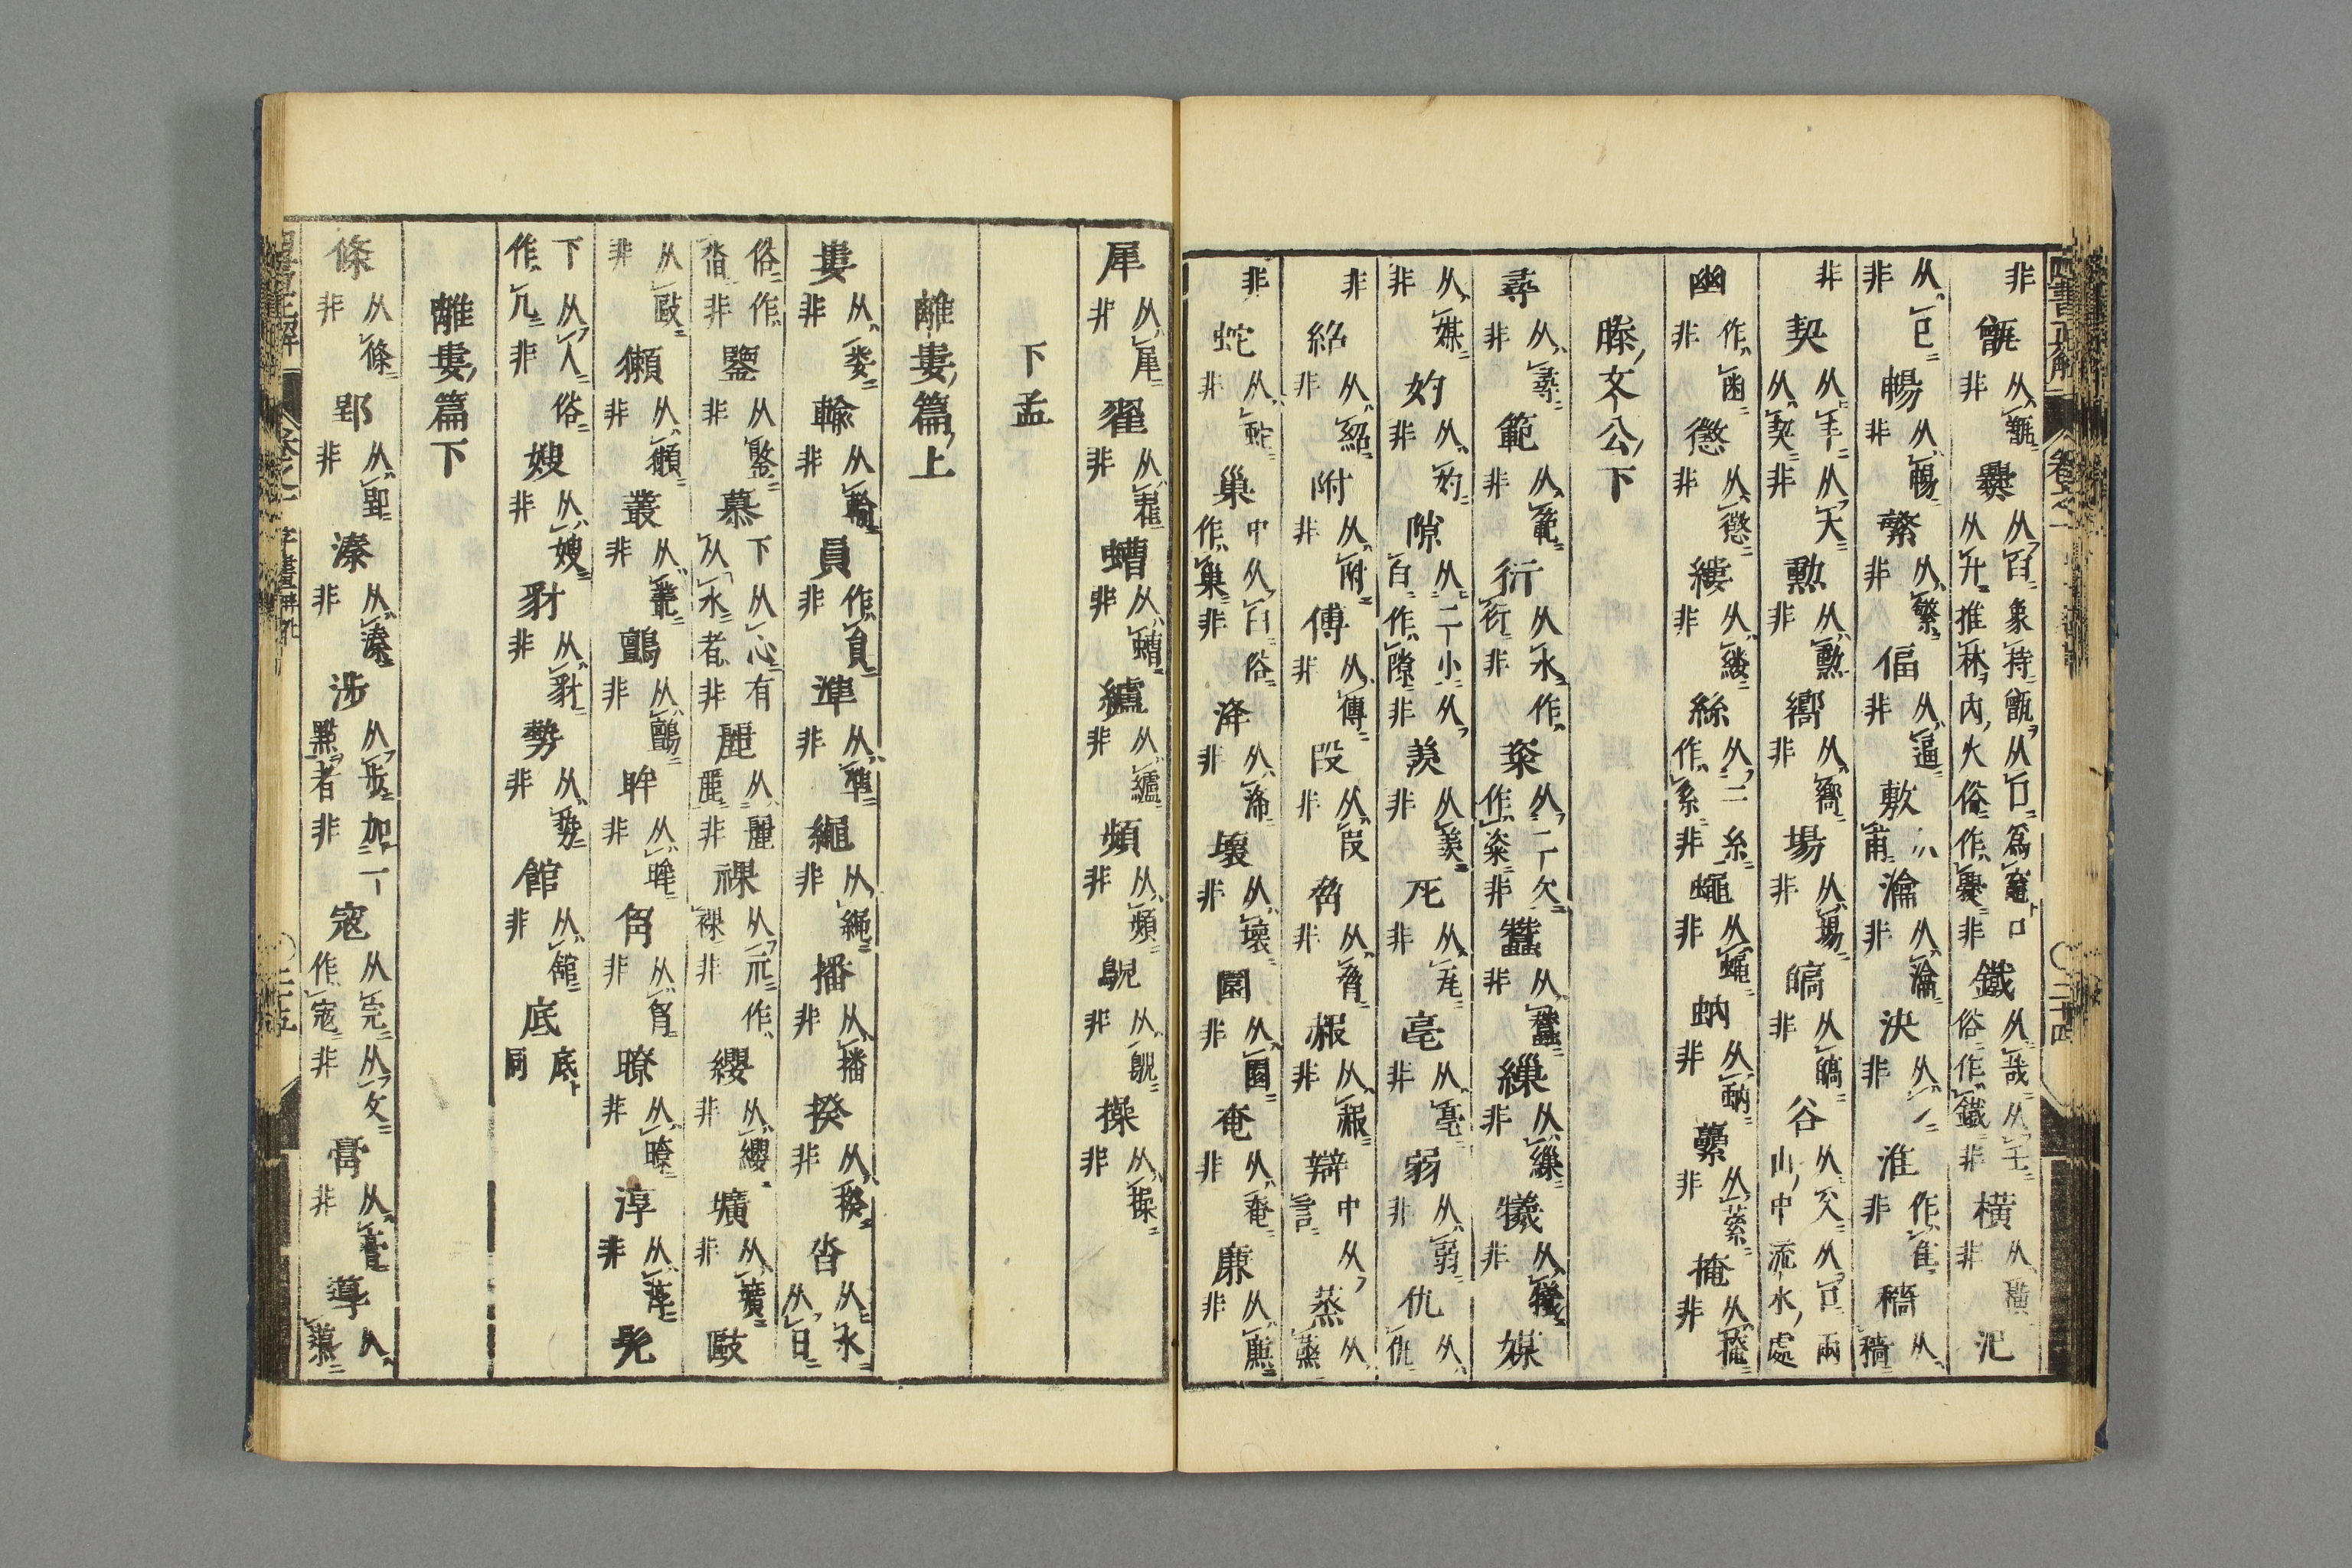 非 甑 从甑非 爨 从百象持甑从冂為竈口从廾推林內火俗作爨非 鐵 从㦲从壬俗作鐵非 橫 从橫非 汜
从已非 暢 从暢非 繁 从繁非 偪 从逼非 敷 甫 瀹 从瀹非 決 从冫非 淮 作隹非 穡 从穡
非 契 从丰从大从契非 勲 从勲非 嚮 从嚮非 場 从場非 皜 从皜非 谷 从仌从口兩山中流水處
幽 作凾非 懲 从懲非 縷 从縷非 絲 从二糸作系非 蠅 从蠅非 蚋 从蚋非 虆 从虆非 掩 从掩非
滕文公下
尋 从尋非 範 从範非 衍 从水作衍非 粢 从二欠作粢非 蠶 从蠶非 繅 从繅非 犧 从犧非 媒
从媒非 妁 从妁非 隙 从二小从百作隙非 羨 从羡非 死 从死非 亳 从亳非 弱 从弱非 仇 从仇
非 紹 从紹非 附 从附非 傅 从傅非 段 从叚非 脅 从脅非 赧 从赧非 辯 中从言 蒸 从蒸
非 蛇 从虵非 巢 中从臼俗作巢非 洚 从洚非 壞 从壞非 園 从園非 奄 从奄非 廉 从廉
四書正解 卷之一 二十四
犀 从犀非 翟 从翟非 螬 从螬非 纑 从纑非 頻 从頻非 鶂 从鶂非 操 从操非
下孟
離婁篇上
婁 从婁非 輸 从輸非 員 作貟非 準 从準非 繩 从繩非 播 从播非 揆 从揆非 沓 从水从日
俗作沓非 鑒 从鑒非 慕 下从心有从水者非 麗 从麗非 祼 从示作裸非 纓 从纓非 壙 从壙非 敺
从敺非 獺 从獺非 叢 从叢非 鸇 从鸇非 眸 从眸非 胷 从胷非 瞭 从瞭非 淳 从淳非 髡
下从人俗作兀非 嫂 从嫂非 豺 从豺非 勢 从勢非 館 从舘非 底 底同
離婁篇下
條 从條非 郢 从郢非 溱 从溱非 涉 从步加一點者非 寇 从完从攵作寇非 膏 从膏非 導 从導
卷之一 字畫辨訛 二十五